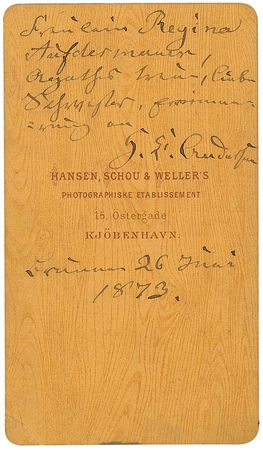 Fräulein Regina
Aufdermauer,
Agathe's treue, liebe
Schwester, Erinne=
rung an
H. C. Andersen
HANSEN, SCHOU & WELLER'S
PHOTOGRAPHISKE ETABLISSEMENT
15, Östergade
KJÖBENHAVN.
Brunnen 26 Juni
1873.